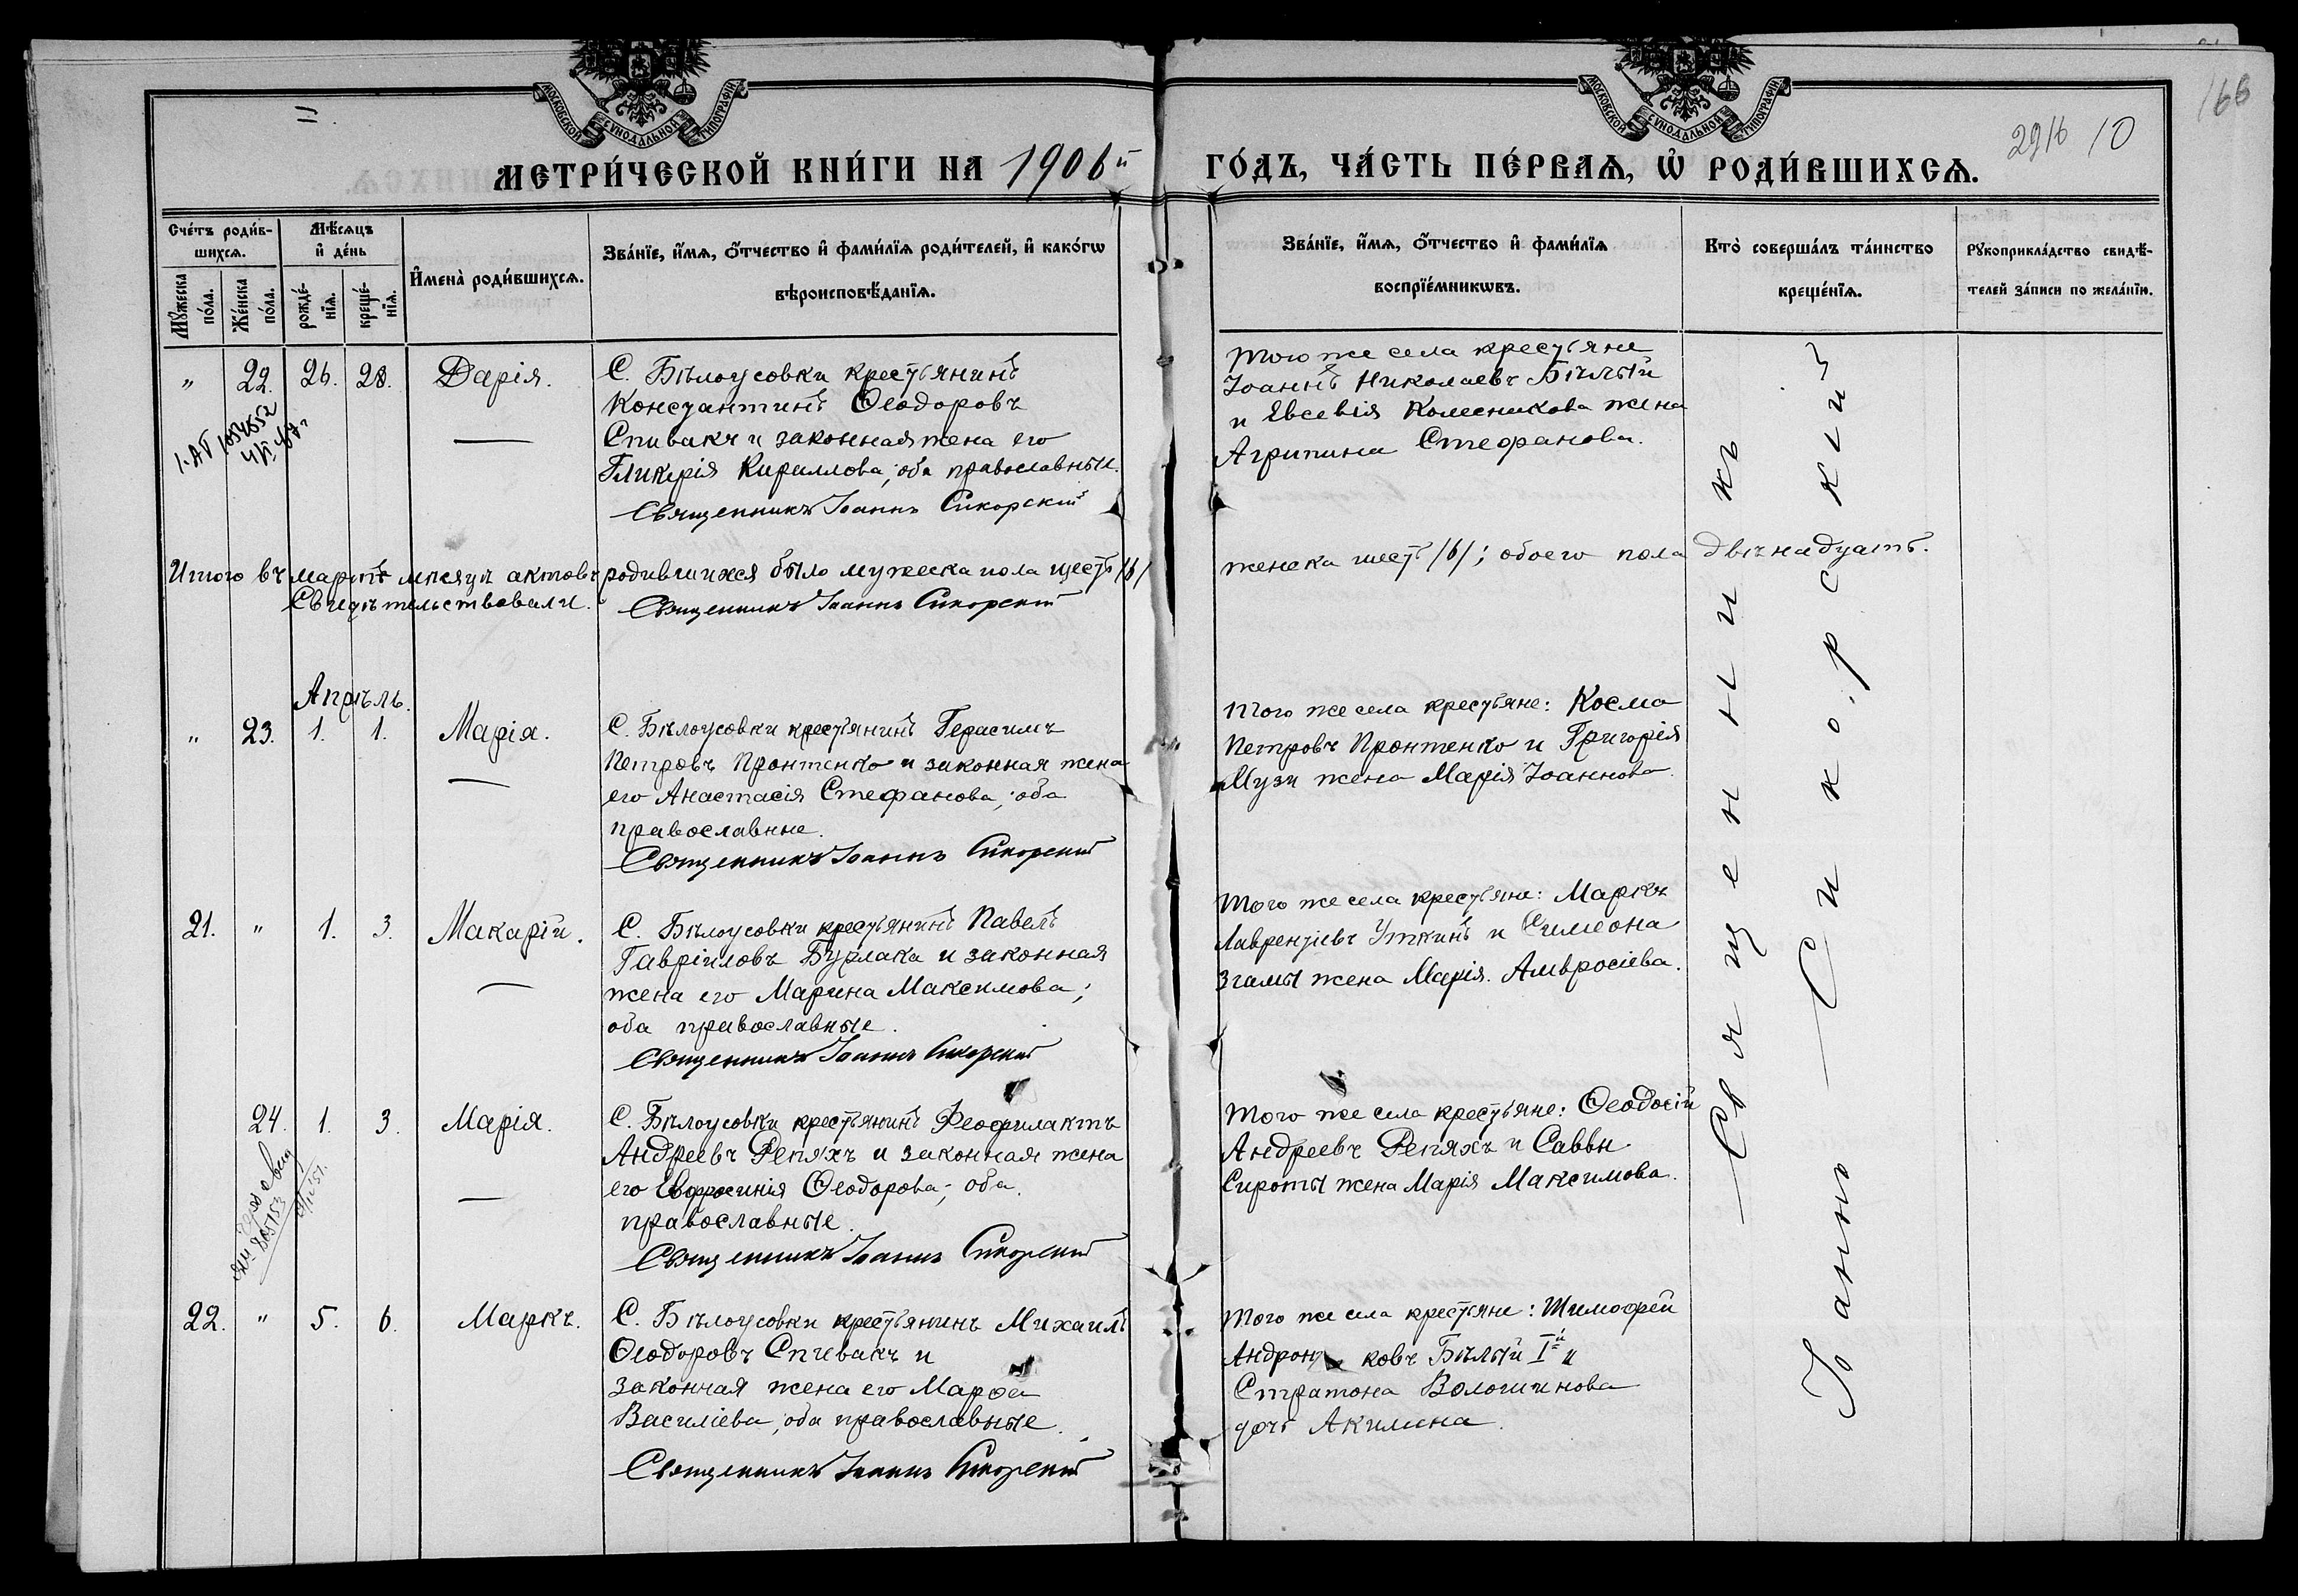 МОСКОВСКОЙ СѴНОДАЛЬНОЙ ТИПОГРАФІИ.
МОСКОВСКОЙ СѴНОДАЛЬНОЙ ТИПОГРАФІИ.
166
2916 10
МЕТРИ́ЧЕСКОЙ КНИ́ГИ НА 1906й ГО́ДЪ, ЧА́СТЬ ПЕ́РВАѦ, Ѽ РОДИ́ВШИХСѦ.
Сче́тъ роди́в-
шихсѧ.
Мꙋ́жеска по́ла.
Же́нска по́ла.
Мѣ́сѧцъ
и҆ де́нь
рожде́-
нїѧ.
креще́-
нїѧ.
И҆мена̀ роди́вшихсѧ.
Зва́нїе, и҆́мѧ, ѻ҆́тчество и҆ фами́лїѧ роди́телей, и҆ како́гѡ
вѣроисповѣ́данїѧ.
Зва́нїе, и҆́мѧ, ѻ҆́тчество и҆ фами́лїѧ
воспрїе́мникѡвъ.
Кто̀ соверша́лъ та́инство
креще́нїѧ.
Рꙋкоприкла́дство свидѣ́-
телей за́писи по жела́нїю.
" 22. 26. 28. Дарія.
С. Бѣлоусовки крестьянинъ
Константинъ Ѳеодоровъ
Спивакъ и законная жена его
Гликерія Кириллова; оба православные.
Священникъ Іоаннъ Сикорскій
Того же села крестьяне
Іоаннъ Николаевъ Бѣлый
и Евсевія Колесникова жена
Агрипина Стефанова.
Итого въ мартѣ мѣсяцѣ актовъ родившихся было мужеска пола шесть /6/ женска шесть /6/; обоего пола двѣнадцать.
Свидѣтельствовали. Священникъ Іоаннъ Сикорскій
Апрѣль.
" 23. 1. 1. Марія.
С. Бѣлоусовки крестьянинъ Герасимъ
Петровъ Пронтенко и законная жена
его Анастасія Стефанова; оба
православные.
Священникъ Іоаннъ Сикорскій
Того же села крестьяне: Косма
Петровъ Пронтенко и Григорія
Музи жена Марія Іоаннова.
21. " 1. 3. Макарій.
С. Бѣлоусовки крестьянинъ Павелъ
Гавріиловъ Бурлака и законная
жена его Марина Максимова;
оба православные.
Священникъ Іоаннъ Сикорскій
Того же села крестьяне: Маркъ
Лаврентіевъ Уткинъ и Симеона
Згамы жена Марія Амвросіева.
24. 1. 3. Марія.
С. Бѣлоусовки крестьянинъ Феофилактъ
Андреевъ Репяхъ и законная жена
его Евфросинія Ѳеодорова; оба
православные.
Священникъ Іоаннъ Сикорскій
Того же села крестьяне: Ѳеодосій
Андреевъ Репяхъ и Саввы
Сироты жена Марія Максимова.
22. " 5. 6. Маркъ.
С. Бѣлоусовки крестьянинъ Михаилъ
Ѳеодоровъ Спивакъ и
законная жена его Марѳа
Василіева; оба православные.
Священникъ Іоаннъ Сикорскій
Того же села крестьяне: Тимофей
Андрониковъ Бѣлый Iй и
Стратона Волошинова
дочь Акилина.
Священникъ
Іоаннъ Сикорскій